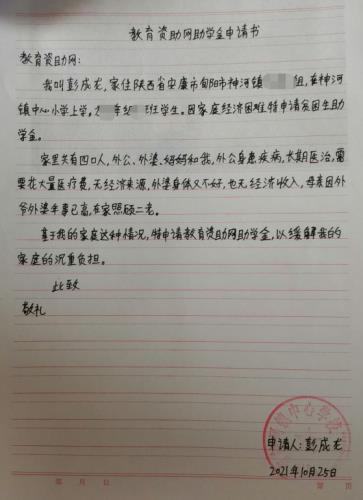 教育资助网助学金申请书
教育资助网:
我叫彭成龙,家住陕西省安康市旬阳市神河镇 组,在神河
镇中心小学上学。 班学生。因家庭经济困难特申请贫困生助
学金。
家里共有四口人,外公、外婆、妈妈和我,外公身患疾病,长期医治,需
要花大量医疗费,无经济来源,外婆身体又不好,也无经济收入,母亲因外
爷外婆年事已高,在家照顾二老。
基于我的家庭这种情况,特申请教育资助网助学金,以缓解我的
家庭的沉重负担。
此致
敬礼
中心学校
申请人:彭成龙
2021年10月25日
第 页
第 页